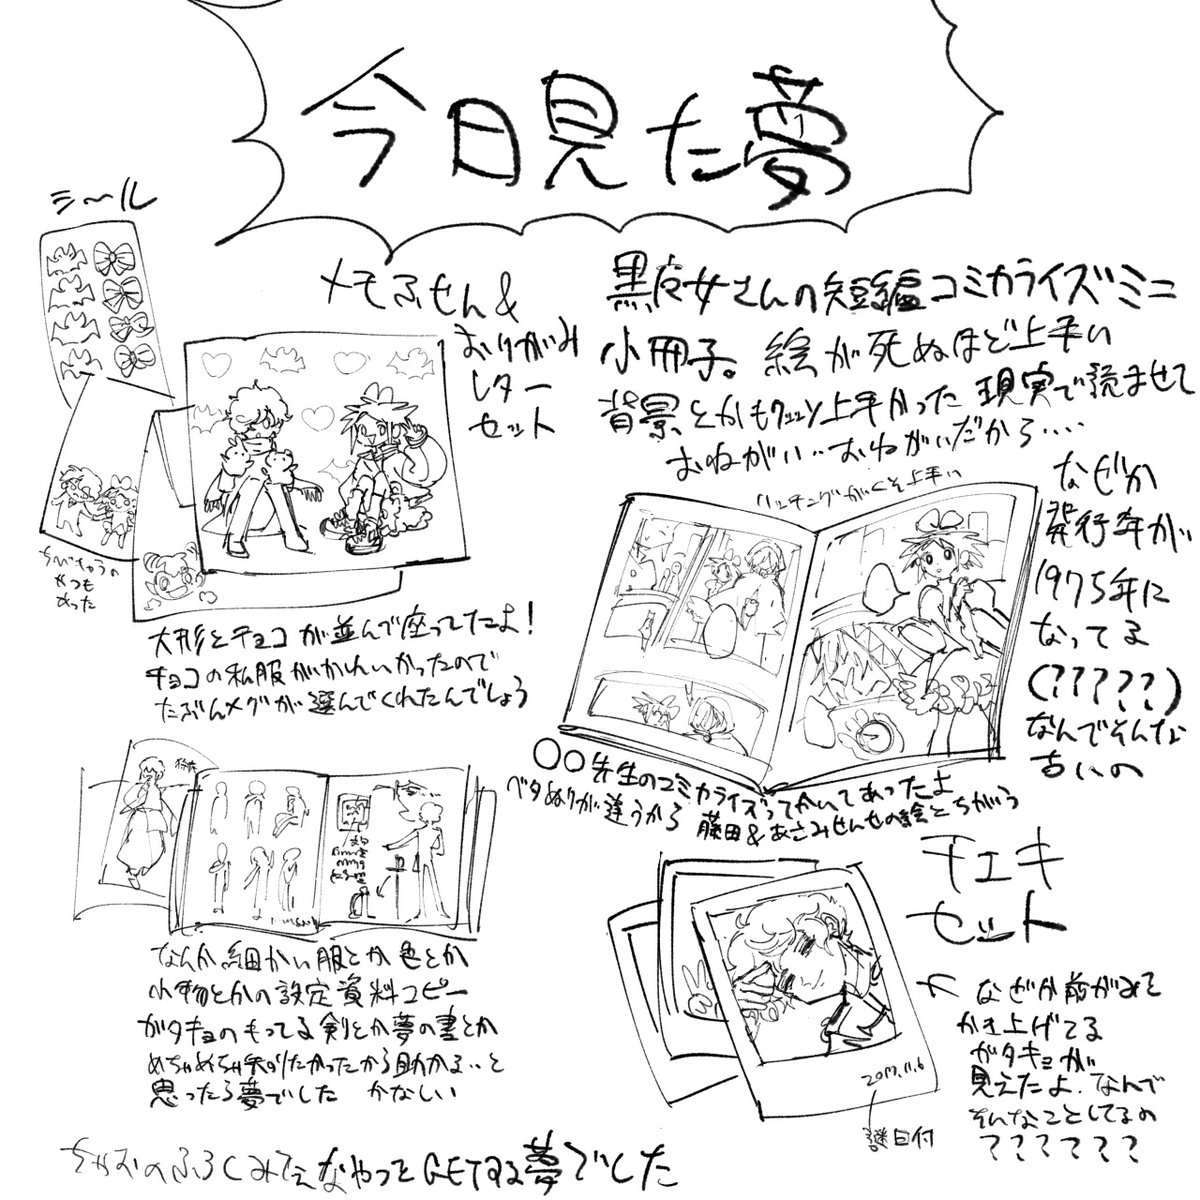 今日見た夢
シール
メモふせん&
おりがみ
レター
セット
黒魔女さんの短編コミカライズミニ
小冊子。絵が死ぬほど上手い
背景とかもクソ上手かった 現実で読ませて
おねがい‥おねがいだから‥‥
ハッチングがくそ上手い
なぜか
発行年が
1975年に
なってる
(?????)
なんでそんな
古いの
ちびきゃらの
やつも
あった
大形とチョコが並んで座ってたよ!
チョコの私服がかわいかったので
たぶんメグが選んでくれたんでしょう
〇〇先生のコミカライズってかいてあったよ
ベタぬりが違うから 藤田&あさみせんせの絵とちがう
なんか細かい服とか色とか
小物とかの設定資料コピー
ガタキョのもってる剣とか夢の書とか
めちゃめちゃ知りたかったから助かる‥と
思ったら夢でした かなしい
チェキ
セット
なぜか前がみを
かき上げてる
ガタキョが
見えたよ.なんで
そんなことしてるの
??????
2017.11.6
謎日付
ちゃおのふろくみてえなやつをGETする夢でした